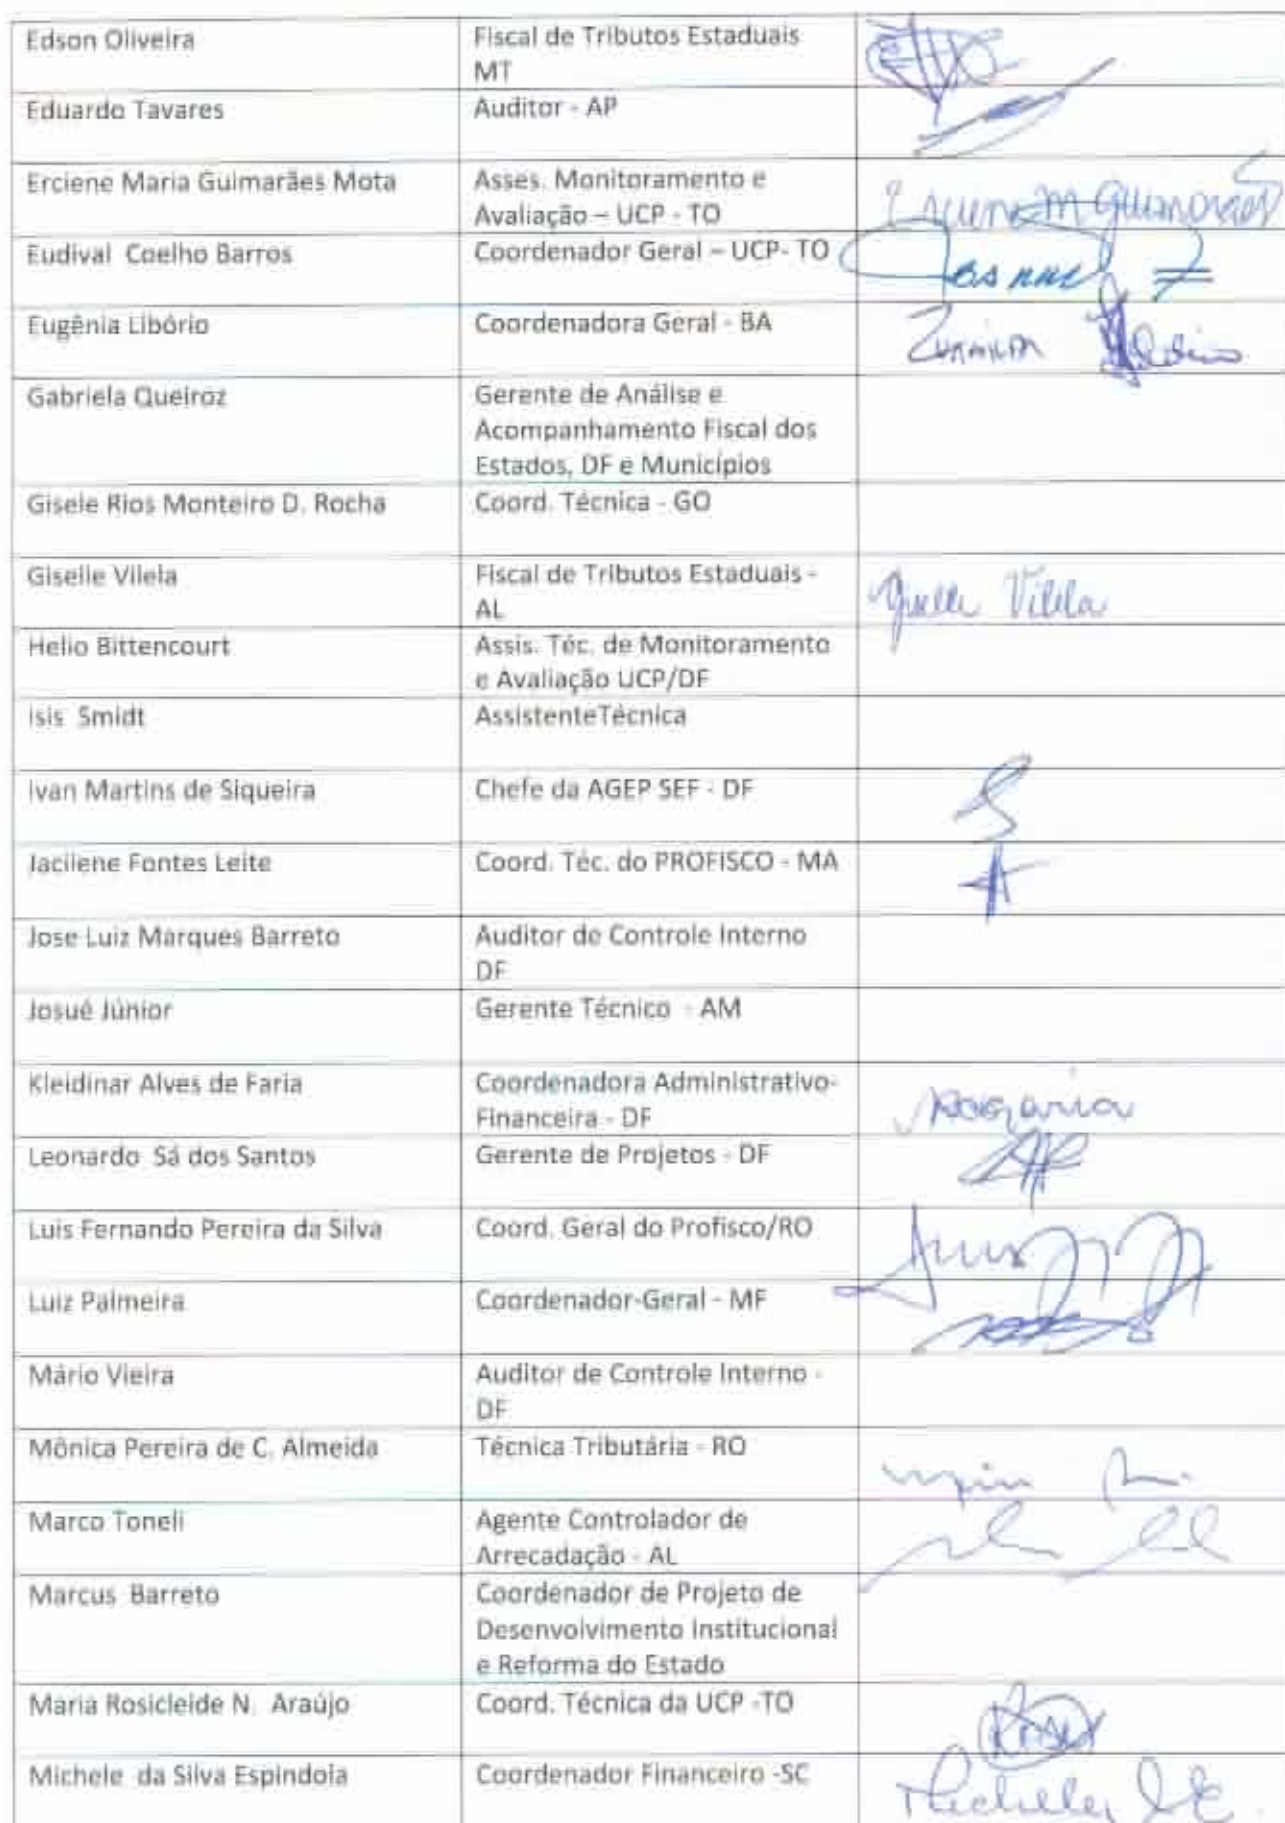 Edson Oliveira
Fiscal de Tributos Estaduais
MT
Eduardo Tavares
Auditor - AP
Erciene Maria Guimarães Mota
Asses. Monitoramento e
Avaliação – UCP - TO
Erciene M Guimarães
Eudival Coelho Barros
Coordenador Geral – UCP- TO
Eugênia Libório
Coordenadora Geral - BA
Gabriela Queiroz
Gerente de Análise e
Acompanhamento Fiscal dos
Estados, DF e Municípios
Gisele Rios Monteiro D. Rocha
Coord. Técnica - GO
Giselle Vilela
Fiscal de Tributos Estaduais -
AL
Giselle Vilela
Helio Bittencourt
Assis. Téc. de Monitoramento
e Avaliação UCP/DF
Isis Smidt
AssistenteTécnica
Ivan Martins de Siqueira
Chefe da AGEP SEF - DF
Jacilene Fontes Leite
Coord. Téc. do PROFISCO - MA
Jose Luiz Marques Barreto
Auditor de Controle Interno
DF
Josué Júnior
Gerente Técnico - AM
Kleidinar Alves de Faria
Coordenadora Administrativo-
Financeira - DF
Leonardo Sá dos Santos
Gerente de Projetos - DF
Luis Fernando Pereira da Silva
Coord. Geral do Profisco/RO
Luiz Palmeira
Coordenador-Geral - MF
Mário Vieira
Auditor de Controle Interno -
DF
Mônica Pereira de C. Almeida
Técnica Tributária - RO
Marco Toneli
Agente Controlador de
Arrecadação - AL
Marcus Barreto
Coordenador de Projeto de
Desenvolvimento Institucional
e Reforma do Estado
Maria Rosicleide N. Araújo
Coord. Técnica da UCP -TO
Michele da Silva Espindola
Coordenador Financeiro -SC